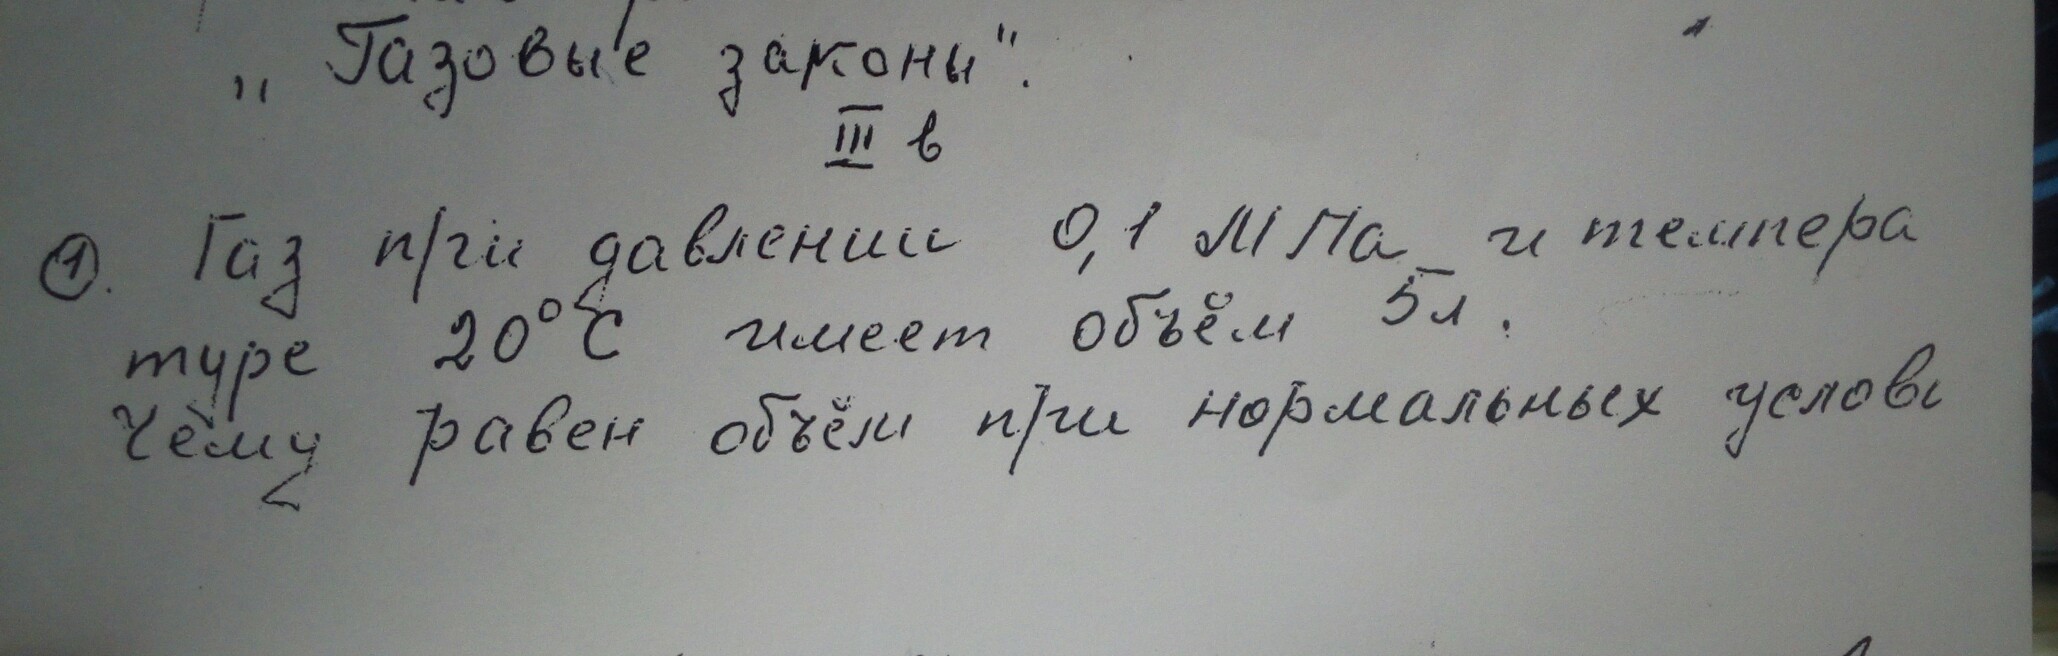 „Газовые законы".
III в
1. Газ при давлении 0,1 МПа и темпера
туре 20°С имеет объём 5л.
Чему равен объём при нормальных услови